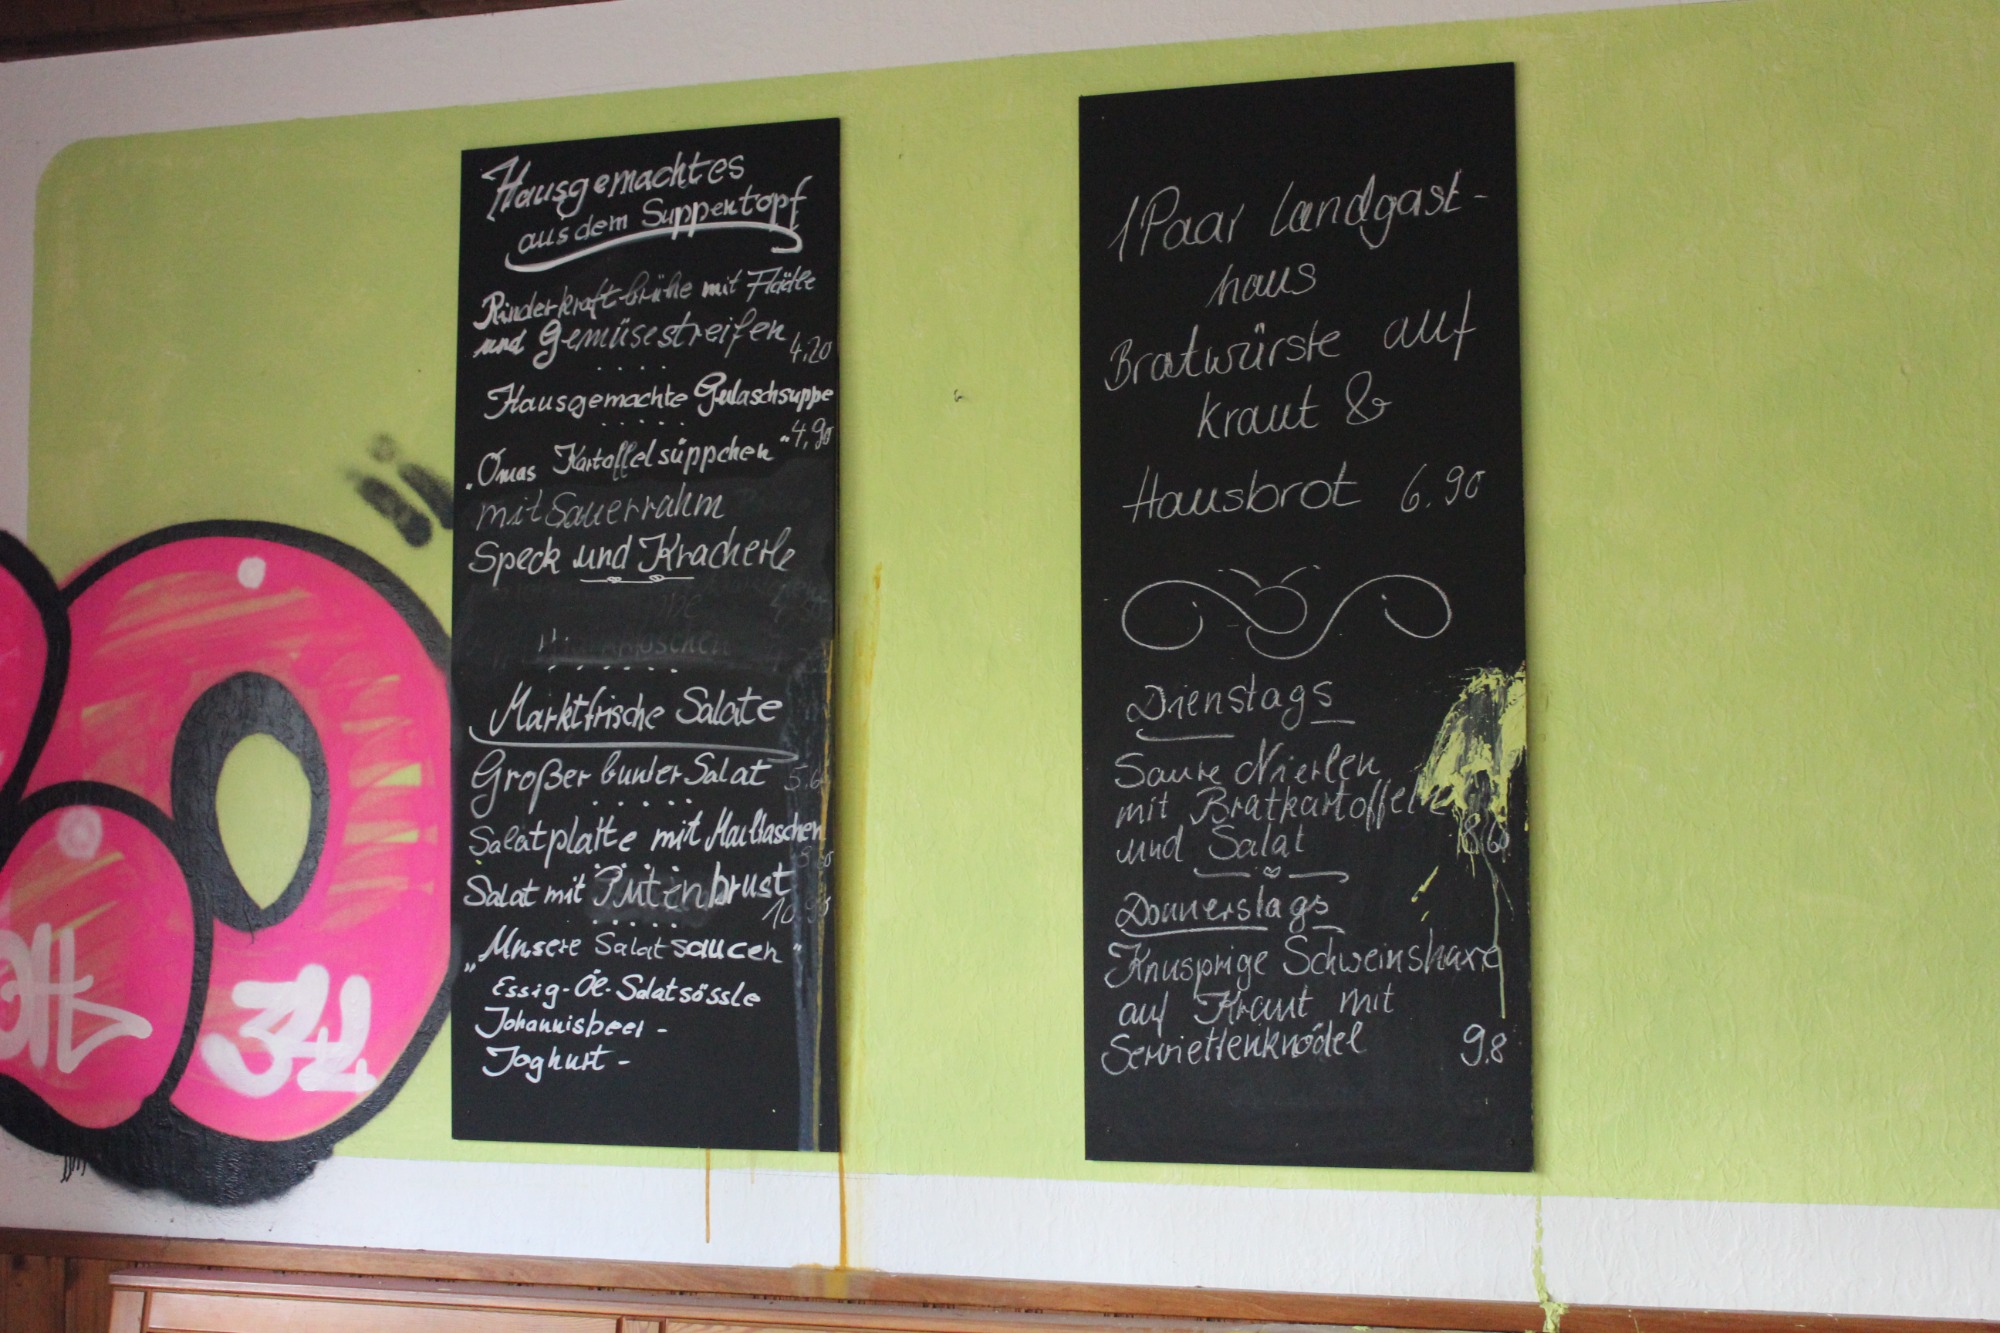 Hausgemachtes
aus dem Suppentopf
Rinderkraftbrühe mit Flädle
und Gemüsestreifen 4,20
Hausgemachte Gulaschsuppe
4,90
„Omas Kartoffelsüppchen"
mit Sauerrahm
Speck und Kracherle
Marktfrische Salate
Großer bunter Salat
Salatplatte mit Maultaschen
Salat mit Putenbrust
10.90
„Unsere Salatsaucen"
Essig-Öl-Salatsössle
Johannisbeer-
Joghurt-
1 Paar Landgast-
haus
Bratwürste auf
Kraut &
Hausbrot 6.90
Dienstags
Saure Nierlen
mit Bratkartoffeln
und Salat 8,60
Donnerstags
Knusprige Schweinshaxe
auf Kraut mit
Serviettenknödel 9.8